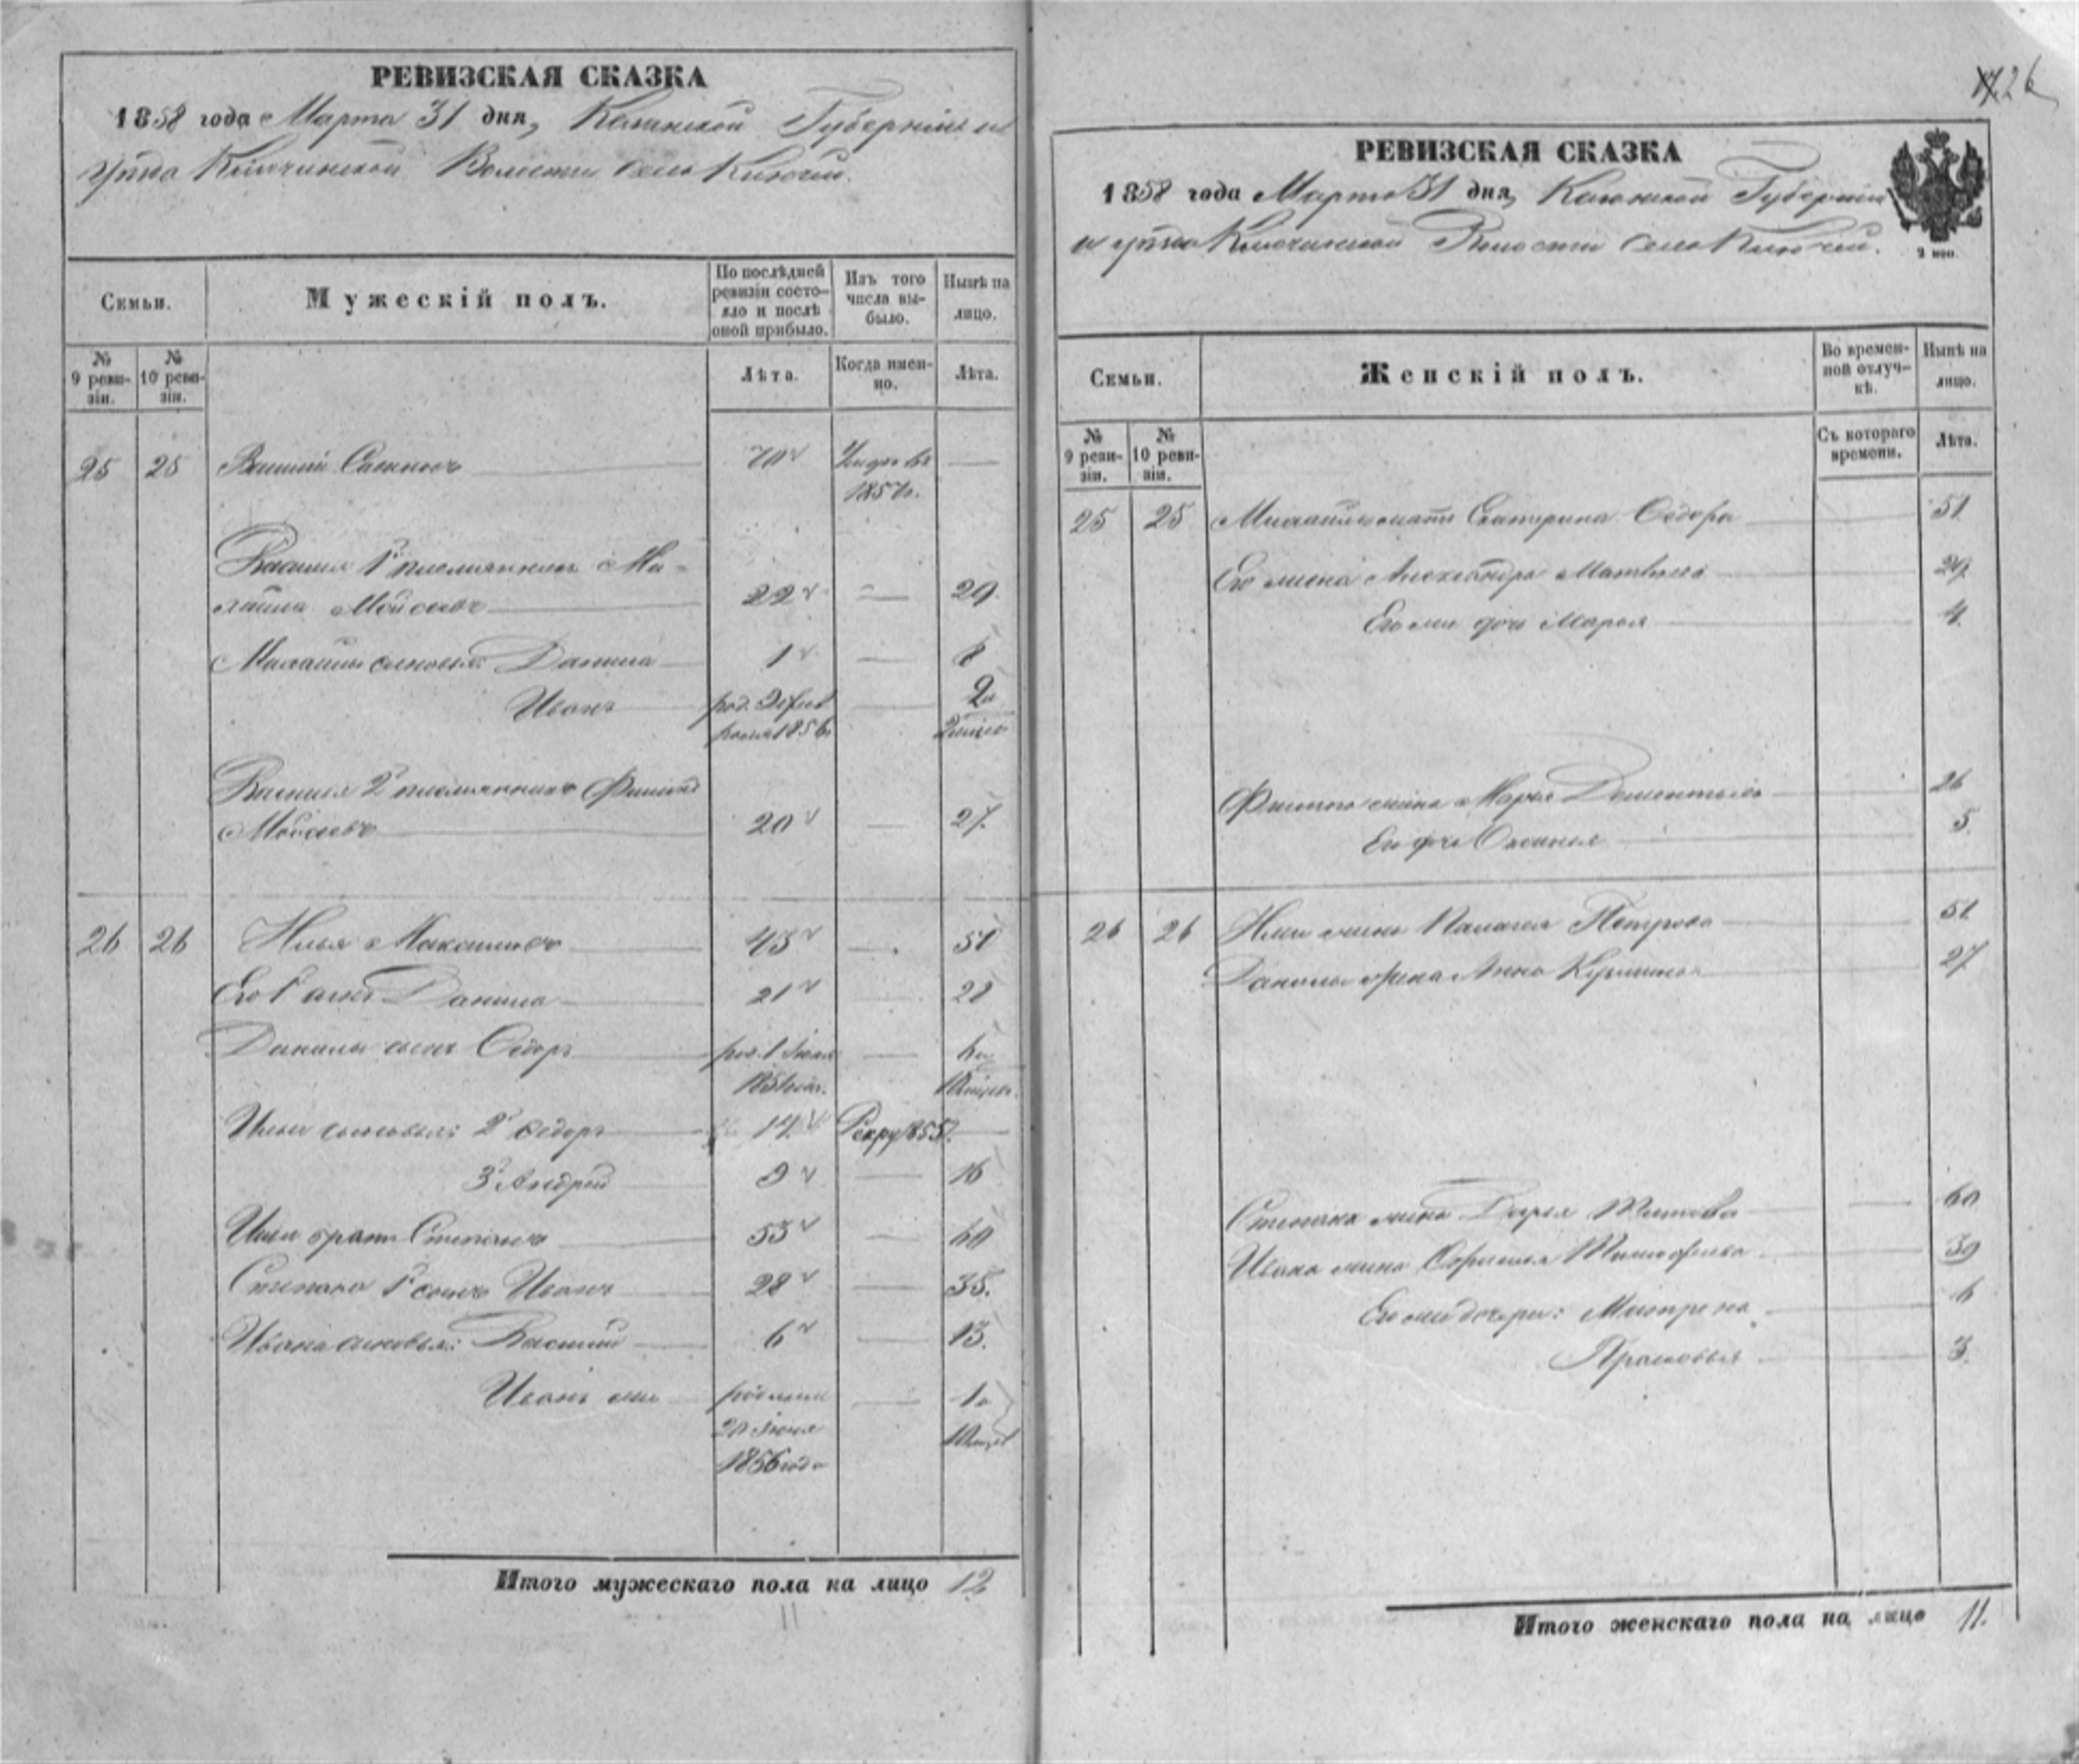 РЕВИЗСКАЯ СКАЗКА
1858 года Марта 31 дня, Казанской Губерніи и
уѣзда Ключинской Волости села Ключи.
Семьи.
Мужескій полъ.
По послѣдней ревизіи состояло и послѣ оной прибыло.
Изъ того числа выбыло.
Нынѣ на лицо.
№ 9 ревизіи.
№ 10 ревизіи.
Лѣта.
Когда именно.
Лѣта.
25 25 Василій 70 1857г.
Василья 1й племянникъ Ми-
хайла Моисеевъ 22 29.
Михайлы сыновья: Данила 1 8
Иванъ род. 1856 2
Василья 2й племянникъ Филипъ
Моисеевъ 20 27.
26 26 Илья Максимовъ 43 51
Его 1й сынъ Данила 21 28
Данилы сынъ Ѳедоръ род. 1 6
Ильи сыновья: 2й Ѳедоръ 14
3й Андрей 9 16
Ильи братъ Степанъ 53 60
Степана 1й сынъ Иванъ 28 35.
Ивана сыновья: Василій 6 13.
Иванъ же 1
20 Іюня
1856 года
Итого мужескаго пола на лицо 12
11
26
РЕВИЗСКАЯ СКАЗКА
1858 года Марта 31 дня, Казанской Губерніи
и уѣзда Ключинской Волости села Ключи.
2 коп.
Семьи.
Женскій полъ.
Во временной отлучкѣ.
Нынѣ на лицо.
№ 9 ревизіи.
№ 10 ревизіи.
Съ котораго времени.
Лѣта.
25 25 Михайлы мать Катерина Ѳедорова 51
Его жена Александра Матвѣева 29.
Его же дочь Марья 4.
Филипа жена Марья Дементьева 26
Его дочь 5.
26 26 Ильи жена Палагея Петрова 51
Данилы жена Анна Кузьмина 27
Степана жена Дарья Титова 60
Ивана жена Тимофеева 39
Его же дочери: Матрена 6
Прасковья 3.
Итого женскаго пола на лицо 11.